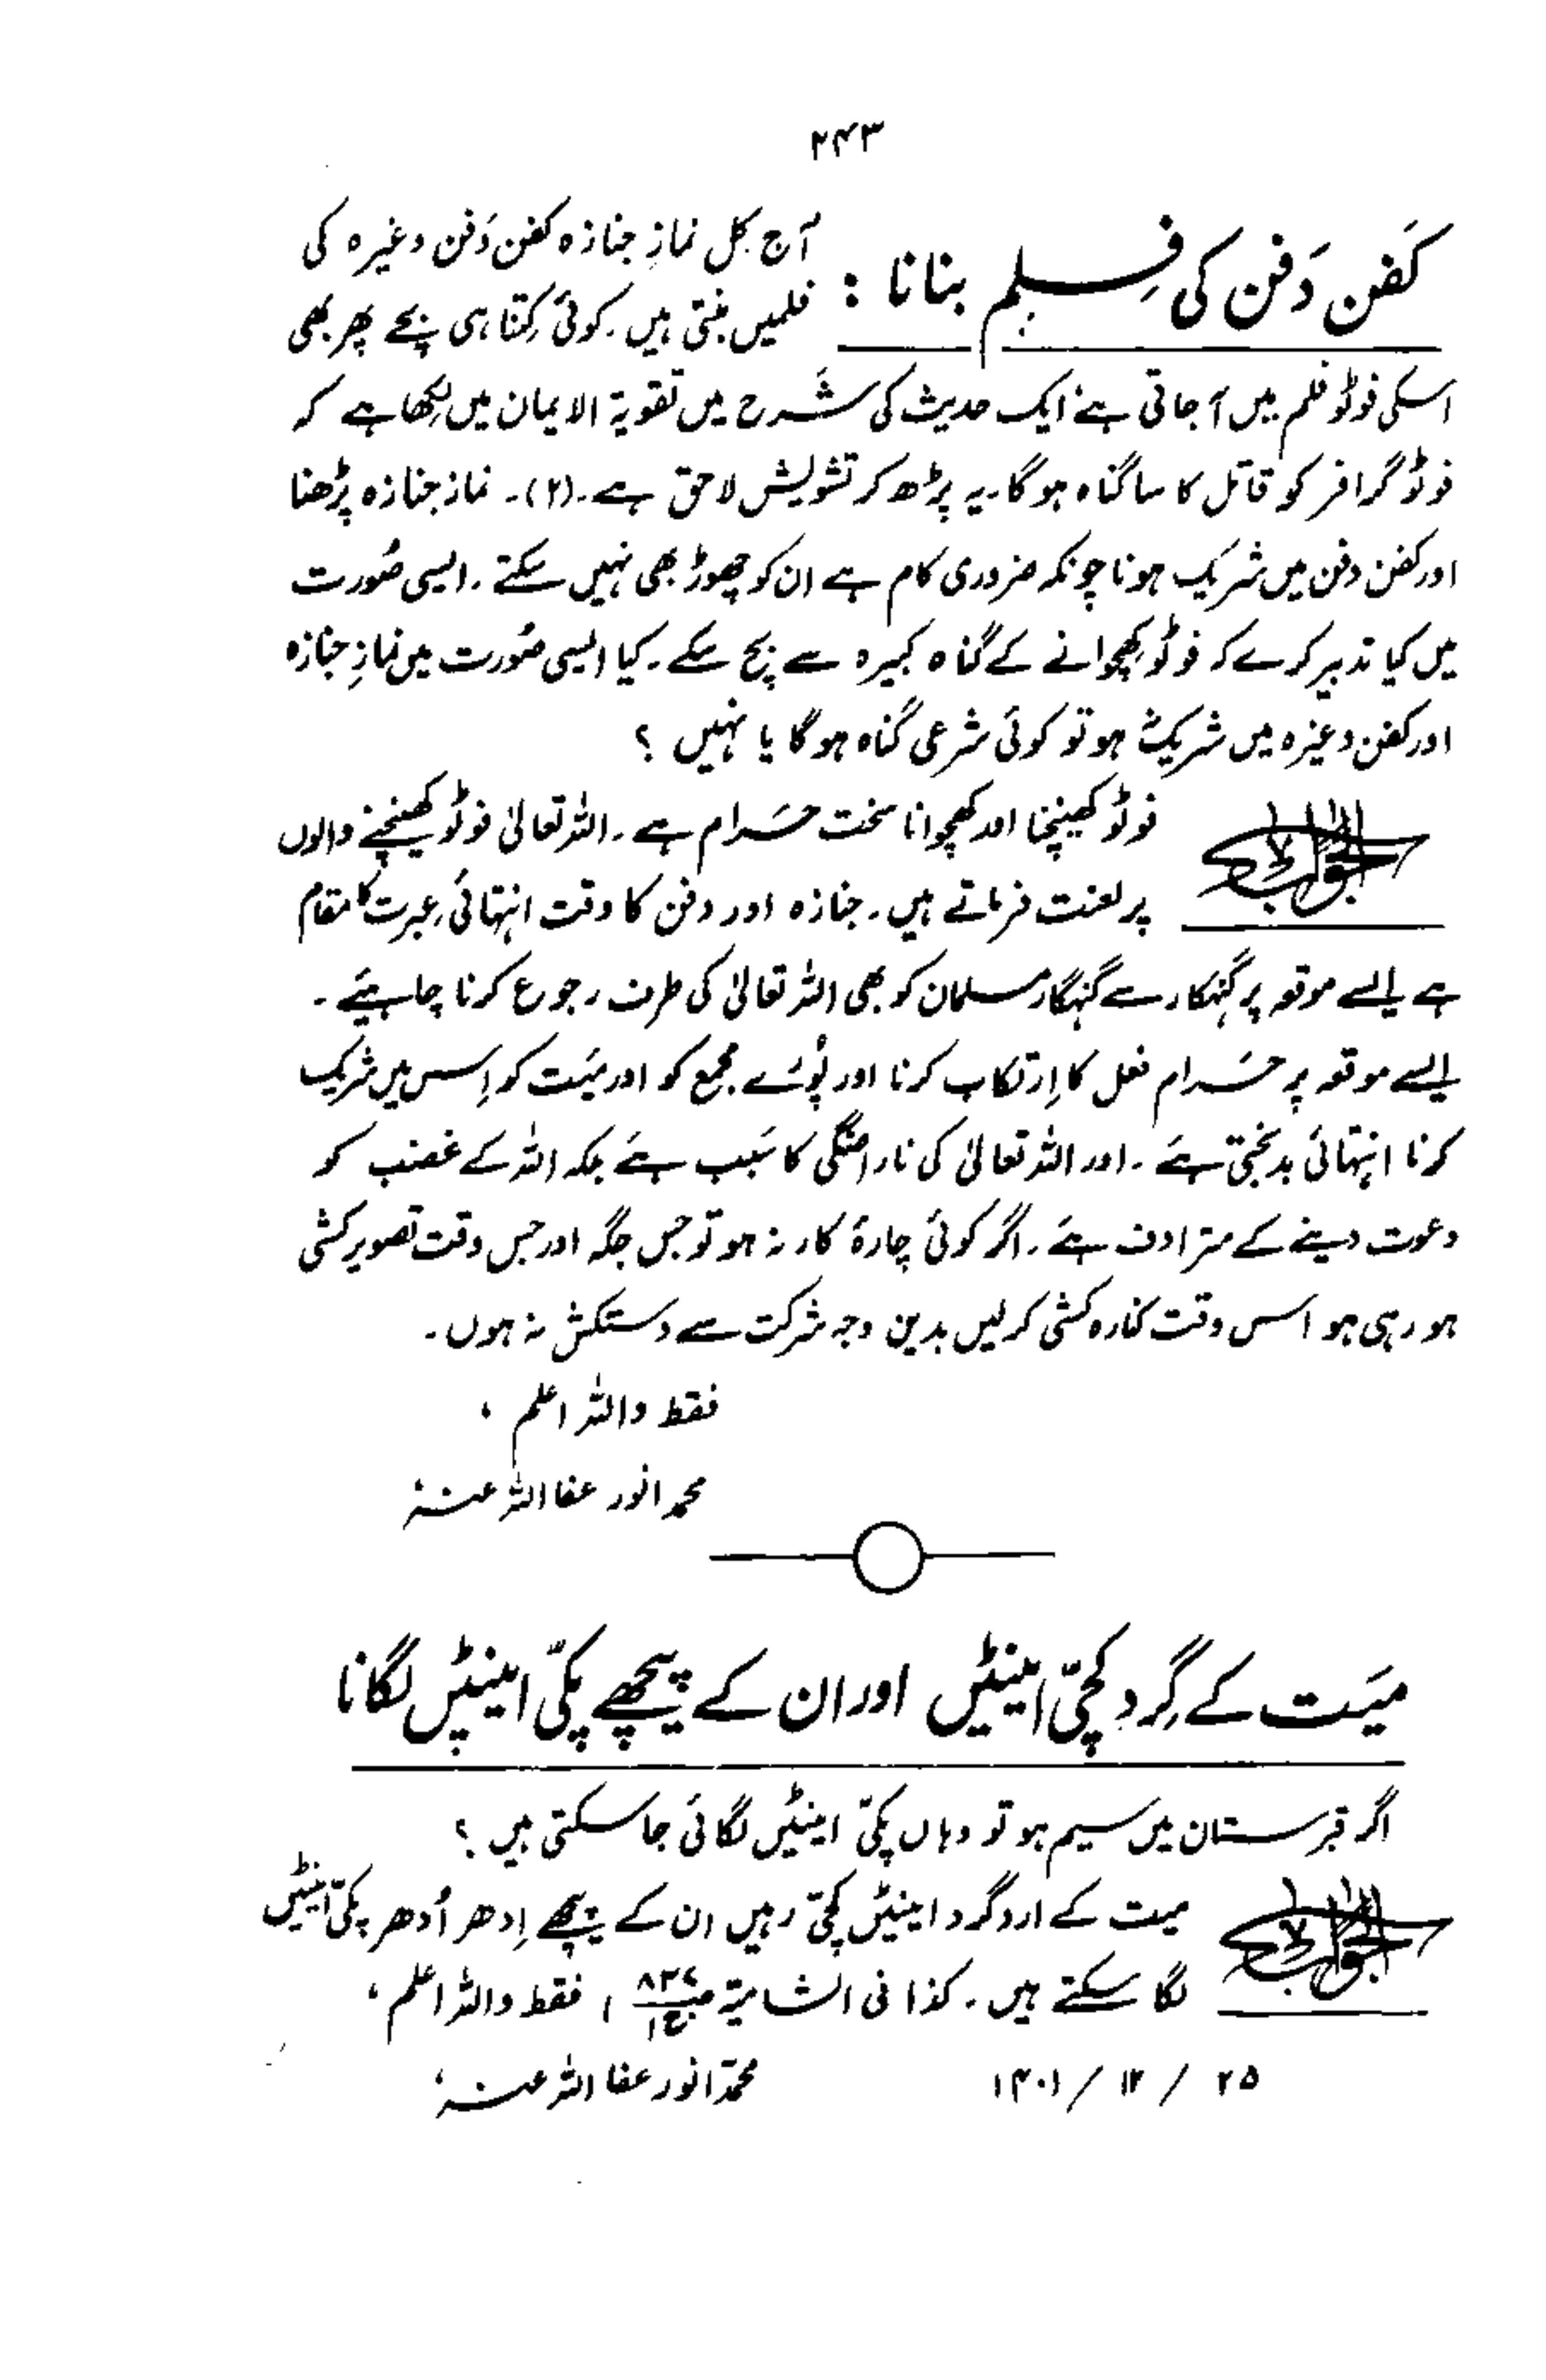 ۲۴۳
کَفن دَفن کی فِلم بنانا :
آج کل نمازِ جنازہ کفن دَفن وغیرہ کی
فلمیں بنتی ہیں۔ کوئی کِتنا ہی بچے پھر بھی
اسکی فوٹو فلم میں آ جاتی ہے ایک حدیث کی شَرح میں تقویۃ الایمان میں لِکھا ہے کہ
فوٹو گرافر کو قاتل کا سا گناہ ہو گا۔ یہ پڑھ کر تشویش لاحق ہے۔ (۲)۔ نماز جنازہ پڑھنا
اور کفن دفن میں شریک ہونا چونکہ ضروری کام ہے ان کو چھوڑ بھی نہیں سکتے۔ ایسی صُورت
میں کیا تدبیر کرے کہ فوٹو کھچوانے کے گناہ کبیرہ سے بچ سکے۔ کیا ایسی صُورت میں نمازِ جنازہ
اور کفن وغیرہ میں شریک ہو تو کوئی شرعی گناہ ہو گا یا نہیں ؟
الجواب
فوٹو کھینچنا اور کھچوانا سخت حَرام ہے۔ اللہ تعالیٰ فوٹو کھینچنے والوں
پر لعنت فرماتے ہیں۔ جنازہ اور دفن کا وقت انتہائی عبرت کا مقام
ہے ایسے موقعہ پر گنہگار سے گنہگار مسلمان کو بھی اللہ تعالیٰ کی طرف رجوع کرنا چاہیئے۔
ایسے موقعہ پر حَرام فعل کا اِرتکاب کرنا اور پُورے مجمع کو اور میّت کو اِس میں شریک
کرنا انتہائی بدبختی ہے۔ اور اللہ تعالیٰ کی ناراضگی کا سَبب ہے بلکہ اللہ کے غضب کو
دعوت دینے کے مترادف ہے۔ اگر کوئی چارۂ کار نہ ہو تو جس جگہ اور جس وقت تصویر کشی
ہو رہی ہو اس وقت کنارہ کشی کر لیں بدین وجہ شرکت سے دستکش نہ ہوں۔
فقط واللہ اعلم ،
محمد انور عفا اللہ عنہ
میّت کے گِرد کچّی اینٹیں اور ان کے پیچھے پکّی اینٹیں لگانا
اگر قبرستان میں سیم ہو تو وہاں پکّی اینٹیں لگائی جا سکتی ہیں ؟
الجواب
میت کے اردگرد اینٹیں کچّی رہیں ان کے پیچھے اِدھر اُدھر پکّی اینٹیں
لگا سکتے ہیں۔ کذا فی الشامیۃ ج۱ ، فقط واللہ اعلم ،
۲۵ / ۱۲ / ۱۴۰۱ محمّد انور عفا اللہ عنہ